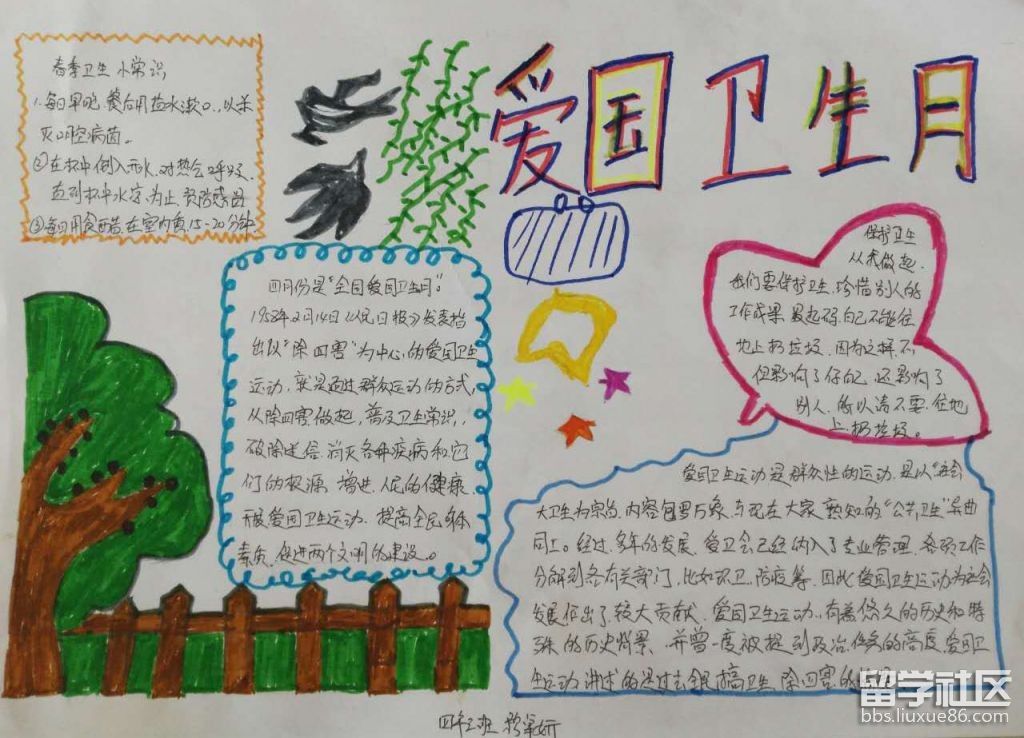 爱国卫生月
春季卫生小常识
1.每日早晚、餐后用盐水漱口,以杀
灭口腔病菌。
②在杯中倒入开水,对热会呼吸,
直到杯中水凉为止,
③每日用食醋在室内熏15-20分钟
四月份是“全国爱国卫生月”。
1958年2月14日《人民日报》发表指
出以“除四害”为中心的爱国卫生
运动,就是通过群众运动的方式,
从除四害做起,普及卫生常识,
破除迷信消灭各种疾病和它
们的根源增进人民的健康,
开展爱国卫生运动,提高全民身体
素质,促进两个文明的建设。
保护卫生
从我做起
我们要保护卫生,珍惜别人的
工作成果最起码自己不能往
地上扔垃圾,因为这样不
但影响了自己,还影响了
别人,所以请不要往地
上扔垃圾。
爱国卫生运动是群众性的运动,是以“社会
大卫生为宗旨,内容包罗万象,与现在大家熟知的“公共卫生”异曲
同工。经过多年的发展,爱卫会已经纳入了专业管理,各项工作
分解到各有关部门,比如环卫,防疫等,因此爱国卫生运动为社会
发展作出了较大贡献,爱国卫生运动,有着悠久的历史和特
殊的历史背景,并曾一度被提到政治任务的高度,爱国卫
生运动讲述的是过去 搞卫生,除四害的
四年三班
留学社区
bbs.liuxue86.com